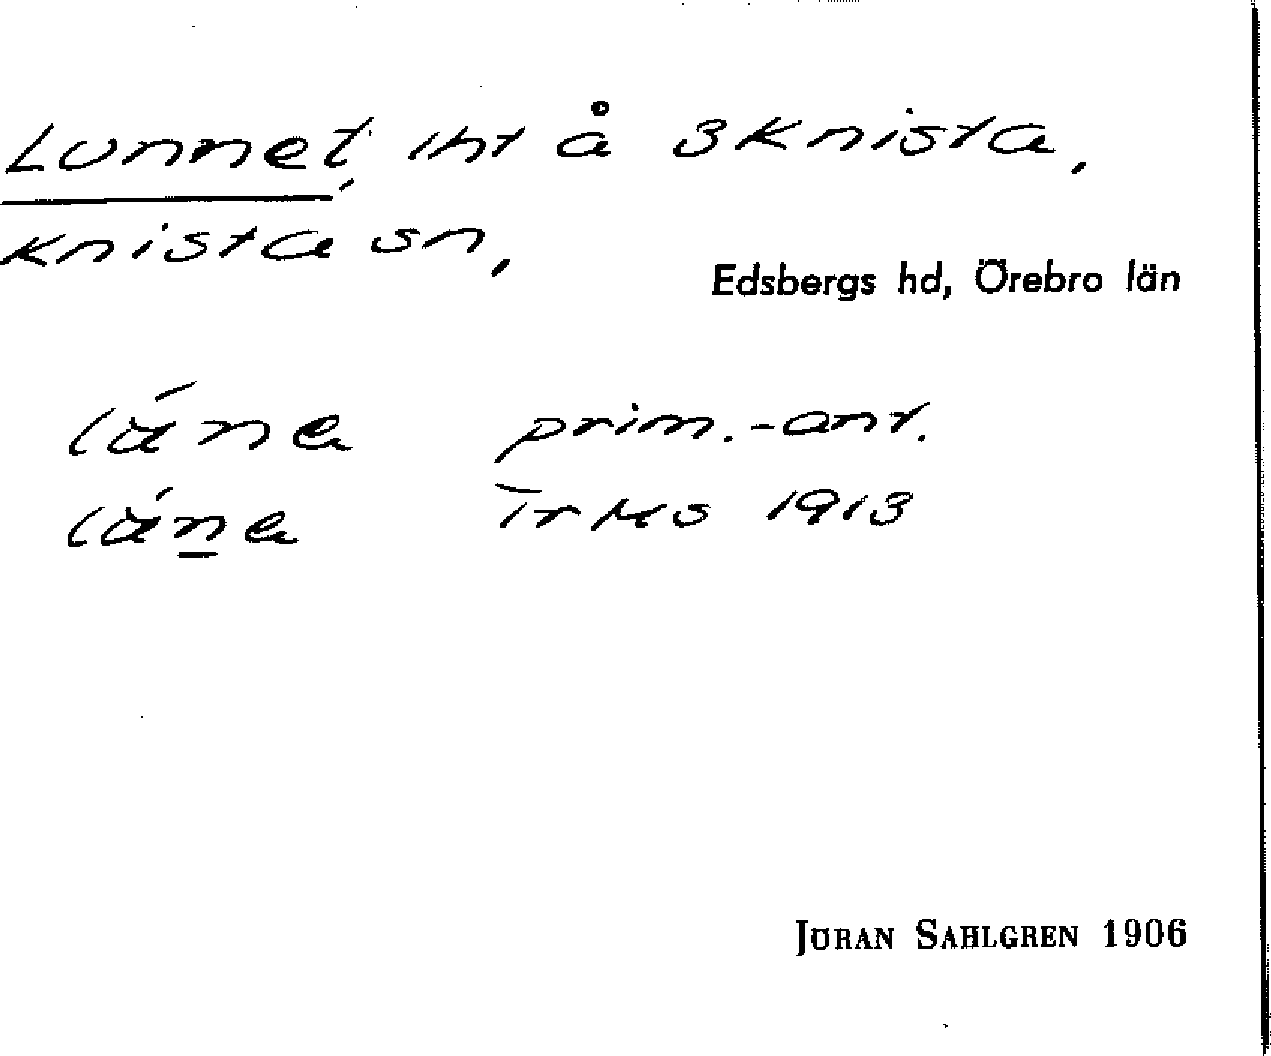 Lunnet, lht å 3 Knista,
Knista sn,
Edsbergs hd, Örebro län
prim.-ant.
1913
JÖRAN SAHLGREN 1906